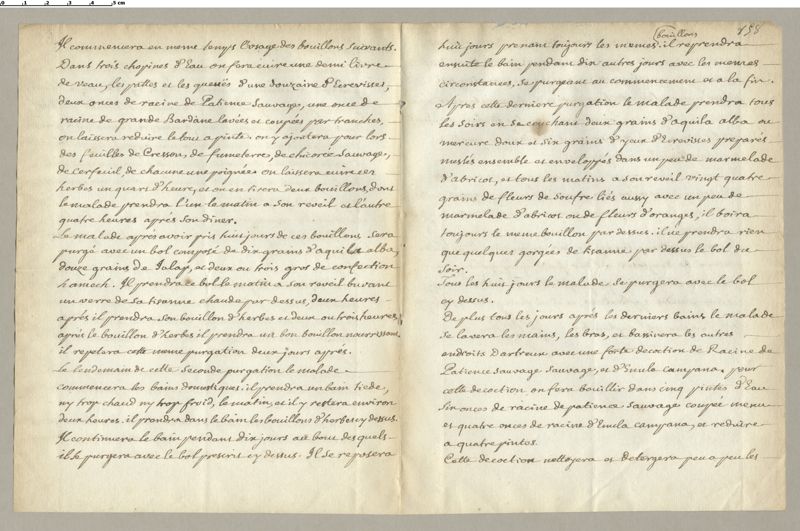 Il commencera en meme temps l'usage des bouillons suivants.
Dans trois chopines d'Eau on fera cuire une demi livre
de veau, les pattes et les queües d'une douzaine d'Ecrevisses,
deux onces de racine de Patience Sauvage, une once de
racine de grande Bardane lavées et coupées par tranches,
on laissera reduire le tout a pinte. on y ajoutera pour lors
des feuilles de Cresson, de fumeterre, de chicorée Sauvage,
de Cerfeuil, de chacune une poignée on laissera cuire ces
herbes un quart d'heure, et on en tirera deux bouillons, dont
le malade prendra l'un le matin a son reveil et l'autre
quatre heures aprés son diner.
Le malade aprés avoir pris huit jours de ces bouillons Sera
purgé avec un bol composé de dix grains d'aquila alba,
douze grains de Jalap, et deux ou trois gros de confection
hamech. Il prendra ce bol le matin a son reveil buvant
un verre de sa tisanne chaude par dessus, deux heures
aprés il prendra son bouillon d'herbes et deux ou trois heures
aprés le bouillon d'herbes il prendra un bon bouillon nourrissant
il repetera cette meme purgation deux jours aprés.
Le lendemain de cette seconde purgation le malade
commencera les bains domestiques. il prendra un bain tiede,
ny trop chaud ny trop froid, le matin, et il y restera environ
deux heures. il prendra dans le bain les bouillons d'herbes cy dessus.
Il continuera le bain pendant dix jours au bout des quels
il Se purgera avec le bol prescrit cy dessus. Il se reposera
158
bouillons
huit jours prenant toujours les memes. il reprendra
ensuite le bain pendant dix autres jours avec les memes
circonstances, se purgeant au commencement et a la fin.
Apres cette derniere purgation le malade prendra tous
les soirs en se couchant deux grains d'aquila alba ou
mercure doux et six grains d'yeux d'Ecrevisses preparés
meslés ensemble et enveloppés dans un peu de marmelade
d'abricots, et tous les matins a son reveil vingt quatre
grains de fleurs de soufre liés aussy avec un peu de
marmelade d'abricots ou de fleurs d'oranges, il boira
toujours le meme bouillon par dessus. il ne prendra rien
que quelques gorgées de tisanne par dessus le bol du
Soir.
Tous les huit jours le malade Se purgera avec le bol
cy dessus.
De plus tous les jours aprés les derniers bains le malade
Se lavera les mains, les bras, et bassinera les autres
endroits Dartreux avec une forte decoction de Racine de
Patience sauvage Sauvage, et d'Enula campana. pour
cette decoction, on fera bouillir dans cinq pintes d'Eau
six onces de racine de patience Sauvage coupée menu
et quatre onces de racine d'Enula campana, et reduire
a quatre pintes.
Cette decoction nettoyera et detergera peu a peu les